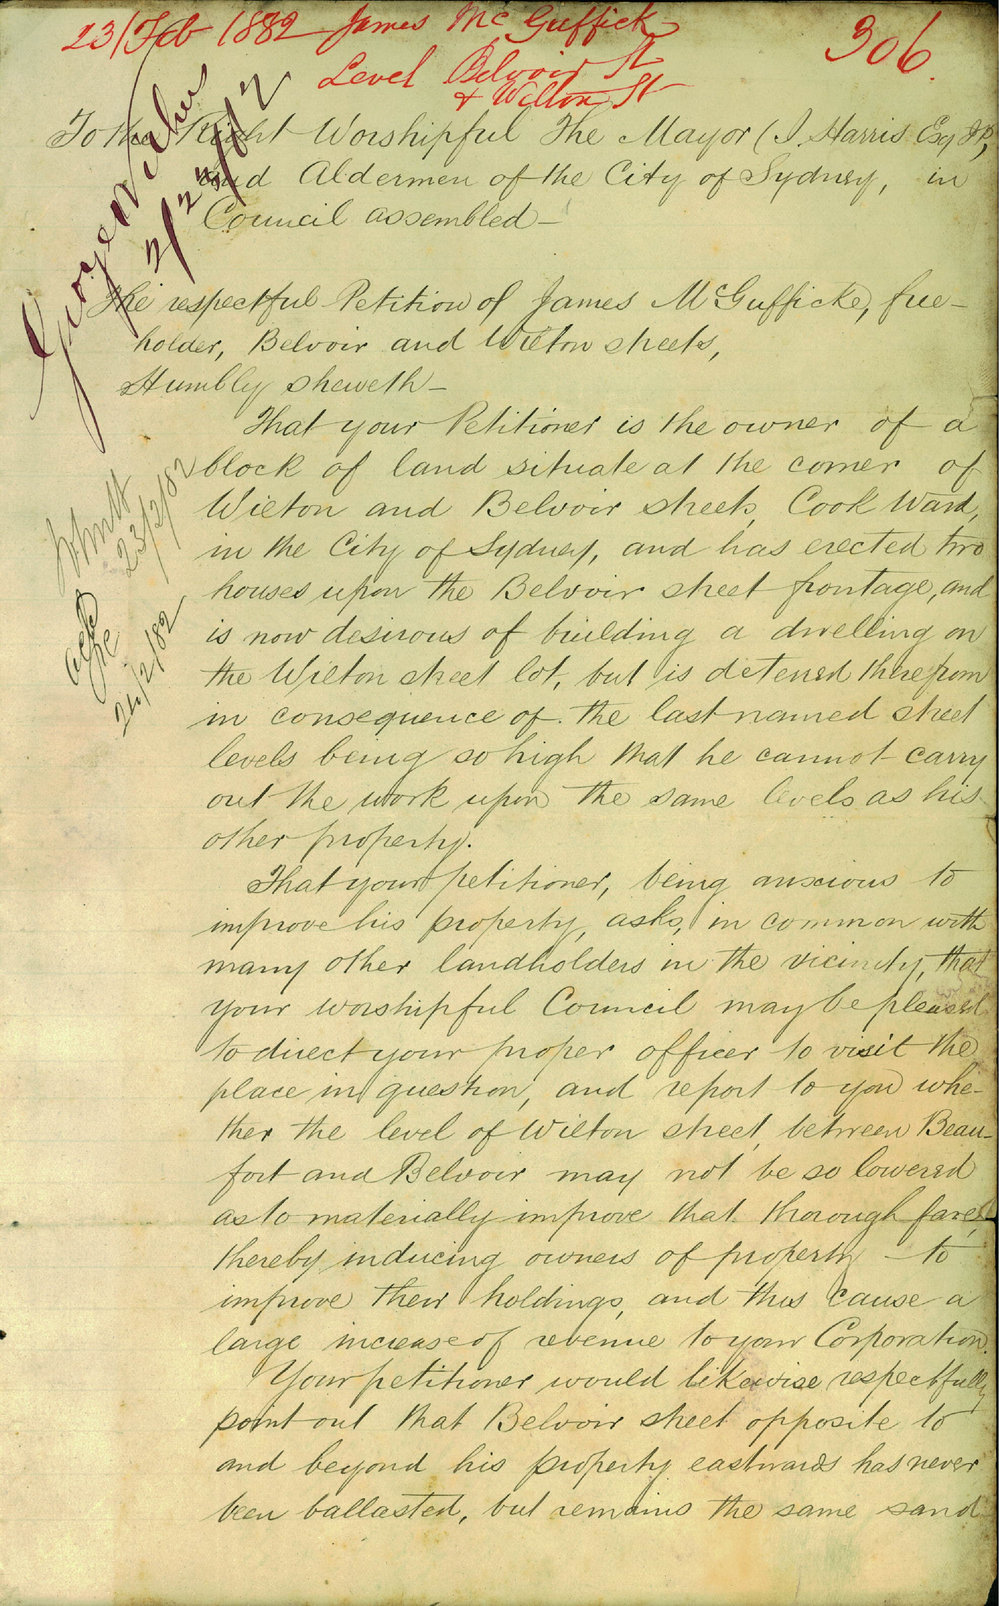 23/Feb 1882 James McGuffick
306.
Level Belvoir St
& Wilton St
To the Right Worshipful The Mayor (J. Harris Esq JP,
and Aldermen of the City of Sydney, in
Council assembled —
The respectful Petition of James McGufficke, free-
holder, Belvoir and Wilton streets,
Humbly sheweth —
That your Petitioner is the owner of a
block of land situate at the corner of
Wilton and Belvoir streets, Cook Ward,
in the City of Sydney, and has erected two
houses upon the Belvoir street frontage, and
is now desirous of building a dwelling on
the Wilton street lot, but is deterred therefrom
in consequence of the last named street
levels being so high that he cannot carry
out the work upon the same levels as his
other property.
That your petitioner, being anxious to
improve his property, asks, in common with
many other landholders in the vicinity, that
your worshipful Council may be pleased
to direct your proper officer to visit the
place in question, and report to you whe-
ther the level of Wilton street, between Beau-
fort and Belvoir may not be so lowered
as to materially improve that thoroughfare,
thereby inducing owners of property to
improve their holdings, and thus cause a
large increase of revenue to your Corporation.
Your petitioner would likewise respectfully
point out that Belvoir street opposite to
and beyond his property eastwards has never
been ballasted, but remains the same sand
23/2/82
24/2/82